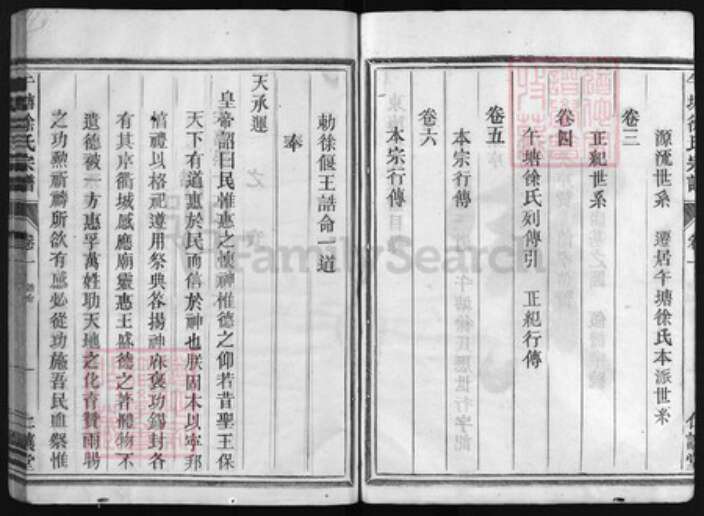 源流世系 遷居午塘徐氏本派世系
卷三
正紀世系
卷四
午塘徐氏列傳引 正紀行傳
卷五
本宗行傳
卷六
本宗行傳
午塘徐氏宗譜 卷一
勅徐偃王誥命一道
奉
天承運
皇帝詔曰民惟惠之懷神惟德之仰若昔聖王保
天下有道惠於民而信於神也朕固本以寧邦
禮以格祀遵用祭典答揚神庥褒功錫封各
有其序衢城感應廟靈惠王盛德之著體物不
遺德被一方惠孚萬姓功天地之化育贊雨暘
之功勲祈禱所欲有感必從功施吾民血祭惟
午塘徐氏宗譜 卷一
FamilySearch